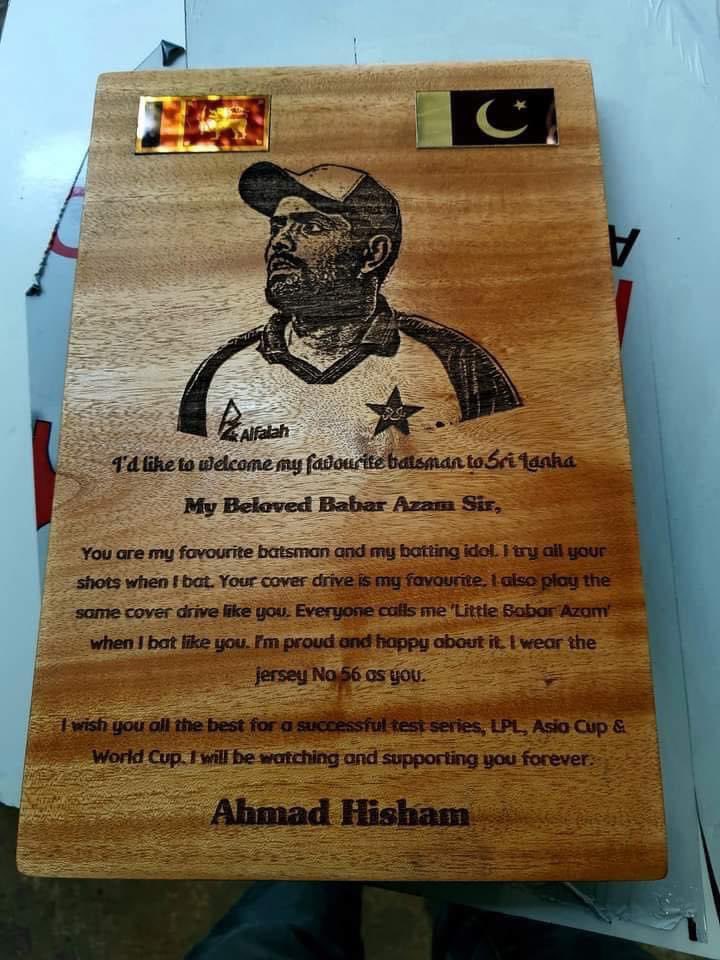 Alfalah
I'd like to welcome my favourite batsman to Sri Lanka
My Beloved Babar Azam Sir,
You are my favourite batsman and my batting idol. I try all your
shots when I bat. Your cover drive is my favourite. I also play the
same cover drive like you. Everyone calls me 'Little Babar Azam'
when I bat like you. I'm proud and happy about it. I wear the
jersey No 56 as you.
I wish you all the best for a successful test series, LPL, Asia Cup &
World Cup. I will be watching and supporting you forever.
Ahmad Hisham